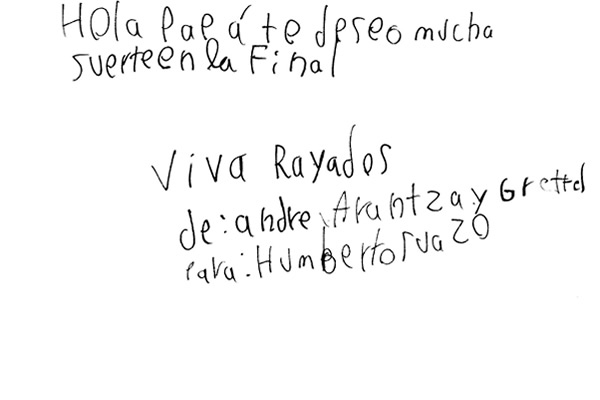 Hola Papá te deseo mucha
suerte en la Final
Viva Rayados
de: andre, Arantza y Grettel
para: Humberto Suazo